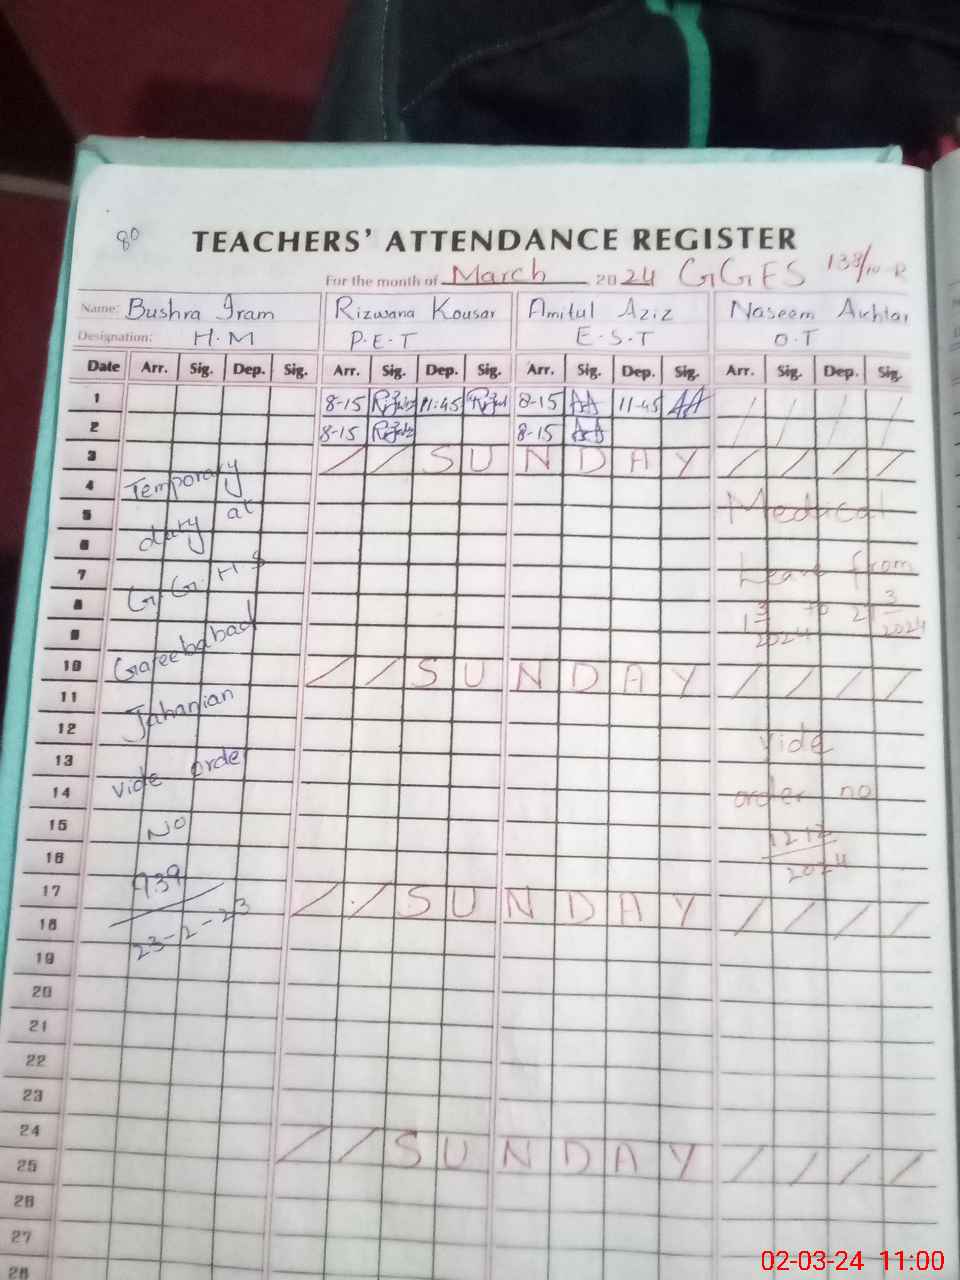 80
TEACHERS' ATTENDANCE REGISTER
For the month of March 2024 GGES 138/10-R
Name: Bushra Iram Rizwana Kousar Amitul Aziz Naseem Akhtar
Designation: H.M P.E.T E.S.T O.T
Date Arr. Sig. Dep. Sig. Arr. Sig. Dep. Sig. Arr. Sig. Dep. Sig. Arr. Sig. Dep. Sig.
1 8-15 11:45 8-15 AA 11-45 AA
2 8-15 8-15 AA
3 SUNDAY
4 Temporary
5 duty at Medical
6
7 G.G.H.S Leave from
8 1 3/2024 to 3/2024
9 Gareebabad
10 SUNDAY
11 Jahanian
12 vide
13 vide order
14 order no
15 NO 12.12
16 2024
17 939 SUNDAY
18 23-2-23
19
20
21
22
23
24 SUNDAY
25
26
27
28
02-03-24 11:00